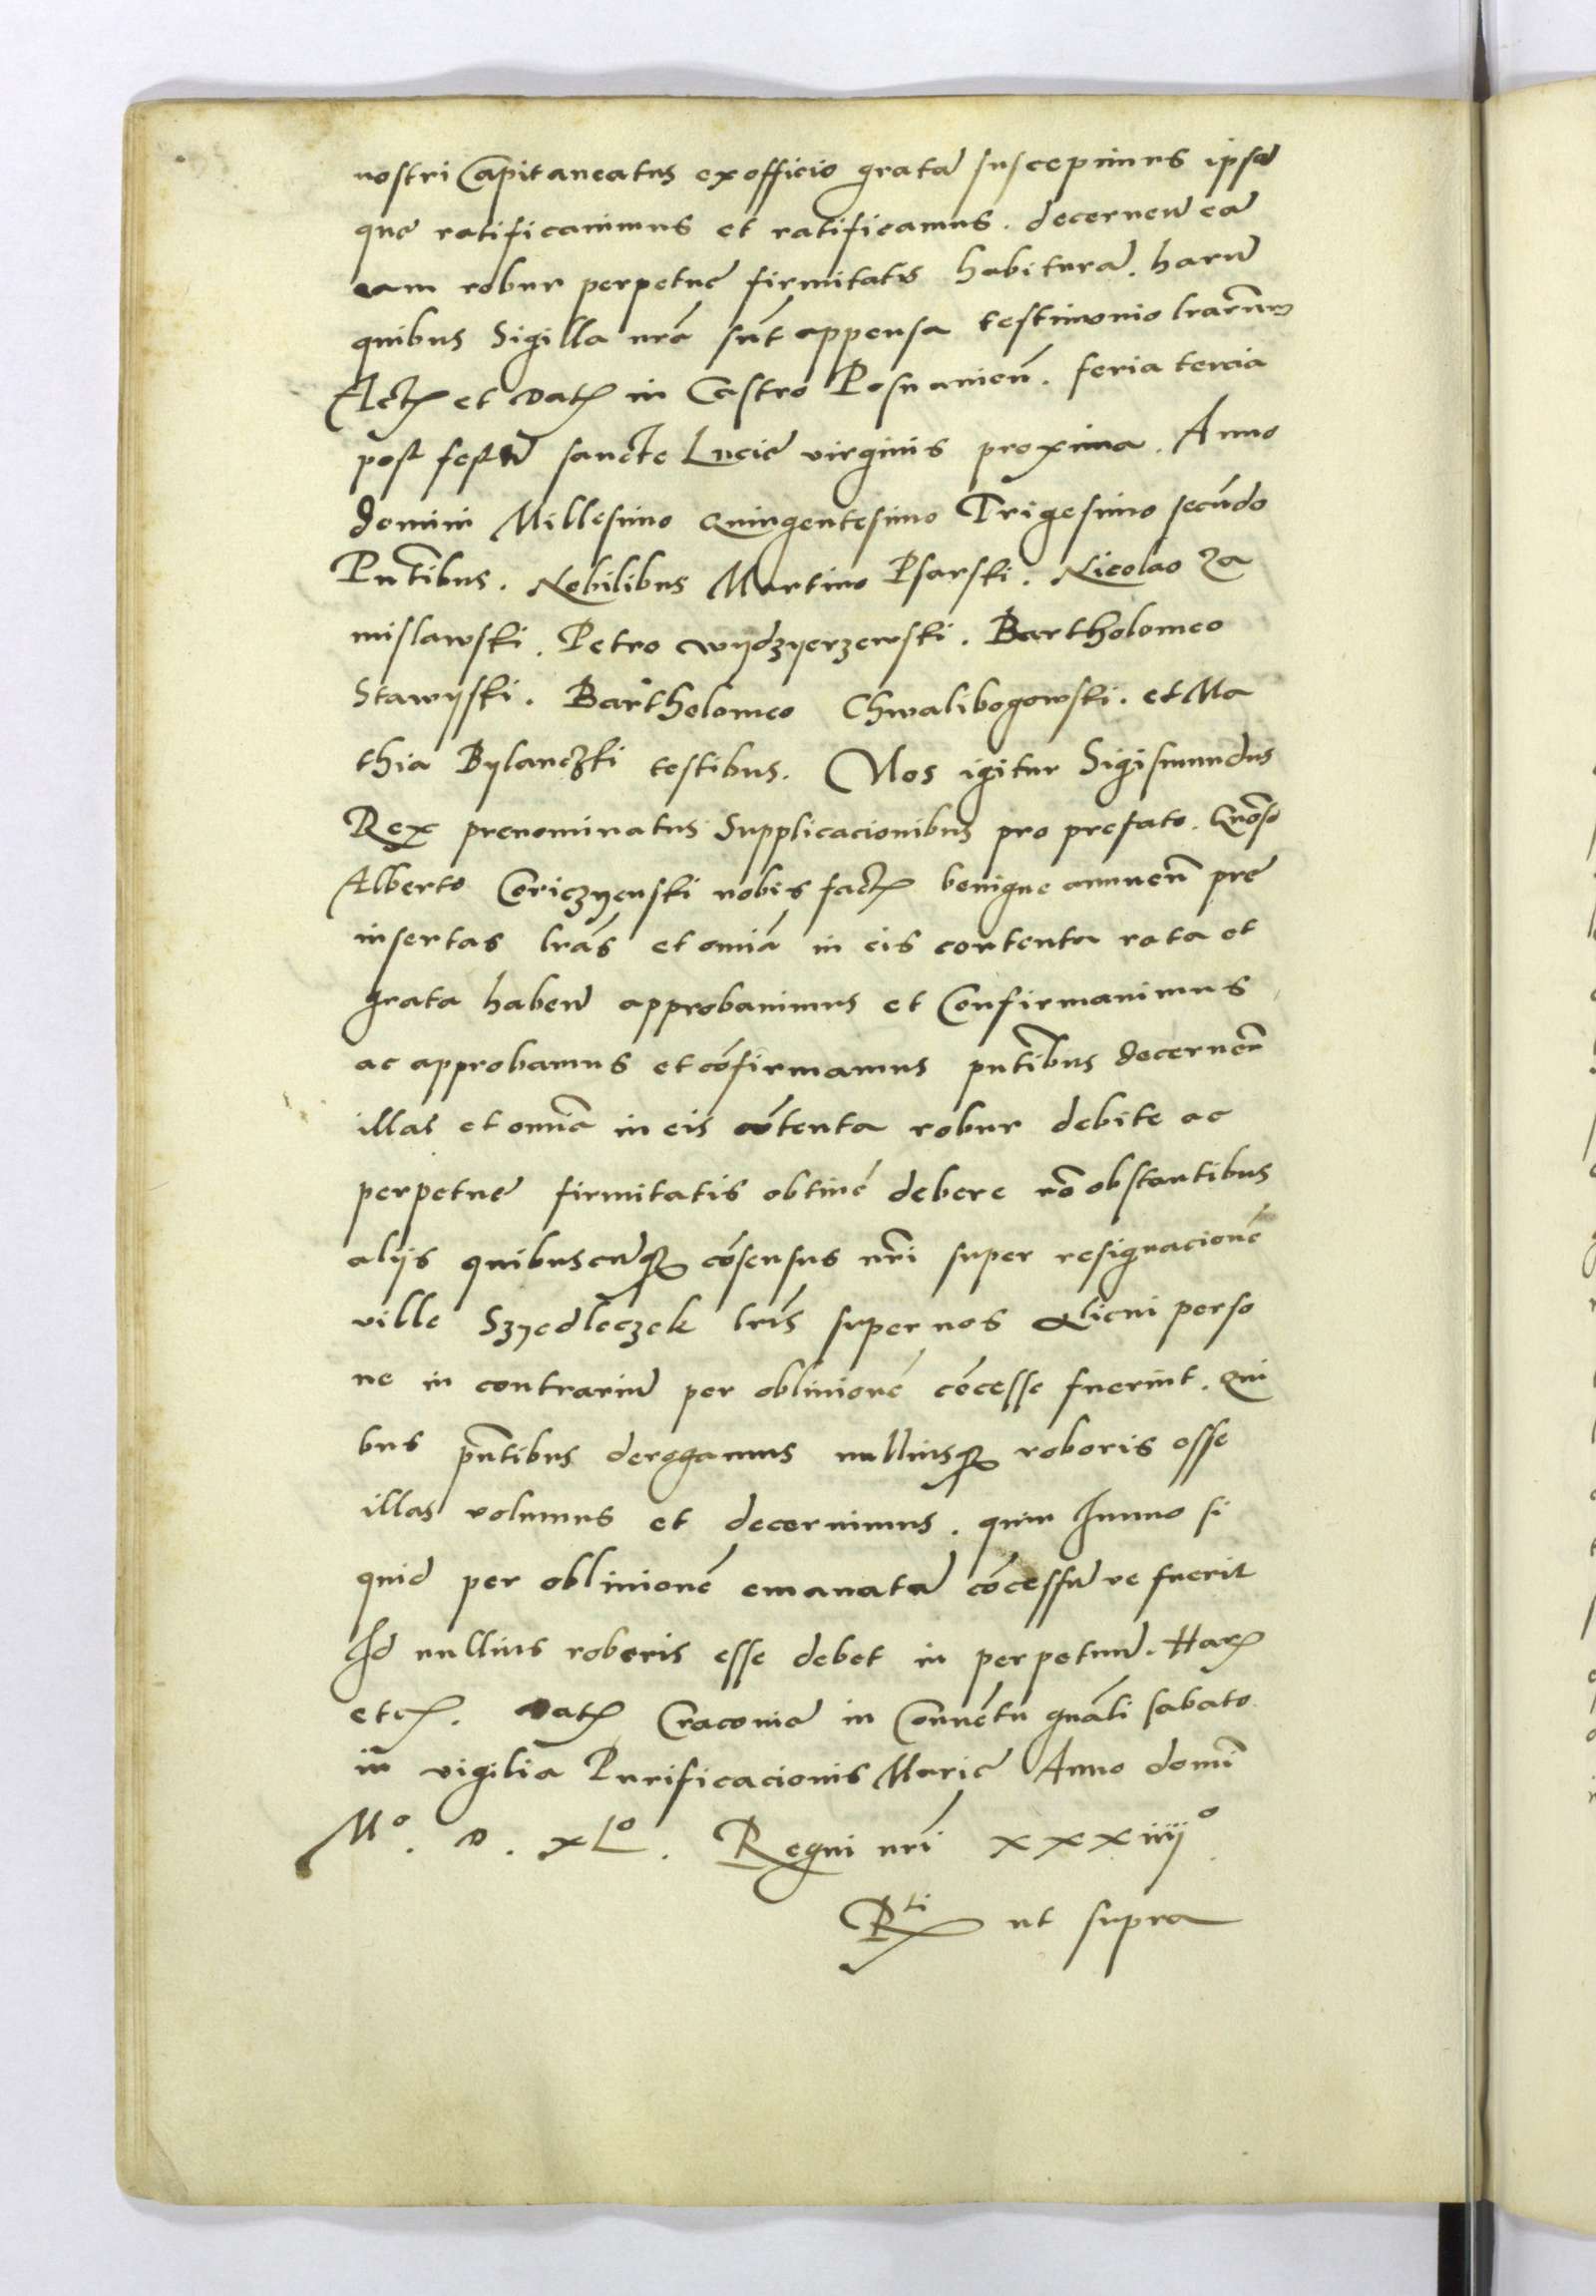 nostri Capitaneatus ex officio gratā suscepimus ipsā
quę ratificauimus et ratificamus. decerneñ eā
eam robur perpetuę firmitatis habiturā. harū
quibus Sigilla nrā sūt appensa testimonio lrārum
Actꝝ et Datꝝ in Castro Posnanieñ. feria tercia
post festū sanctę Lucię virginis proxima. Anno
domini Millesimo Quingentesimo Trigesimo secūdo
Pntibus. Nobilibus Martino Psarski. Nicolao Za
mislawski. Petro Wydzyerzewski. Bartholomeo
Stawyski. Bartholomeo Chwalibogowski. et Ma
thia Bylanczki testibus. Nos igitur Sigismundus
Rex prenominatus Supplicacionibus pro prefato. Gnōso
Alberto Coriczyenski nobis factꝝ benigne annueñ pre
insertas lrās et omīa in eis contenta rata et
grata habeñ approbauimus et Confirmauimus
ac approbamus et cōfirmamus pntibus decerneñ
illas et omīa in eis cōtenta robur debite ac
perpetuę firmitatis obtinē debere nō obstantibus
alijs quibuscūqꝫ cōsensus nrī super resignacionē
ville Szyedleczek lrīs super nos alicui perso
ne in contrariū per obliuionē cōcesse fuerint. Qui
bus pntibus derogamus nulliusqꝫ roboris esse
illas volumus et decernimus. quin Immo si
quid per obliuionē emanatū cōcessū ve fuerit
Id nullius roboris esse debet in perpetuū. Harꝝ
etcꝝ. Datꝝ Cracouię in Conuētu gnāli sabato
in vigilia Purificacionis Marię Anno domī
M°. D. xL°. Regni nrī xxxiiij°.
Rti ut supra